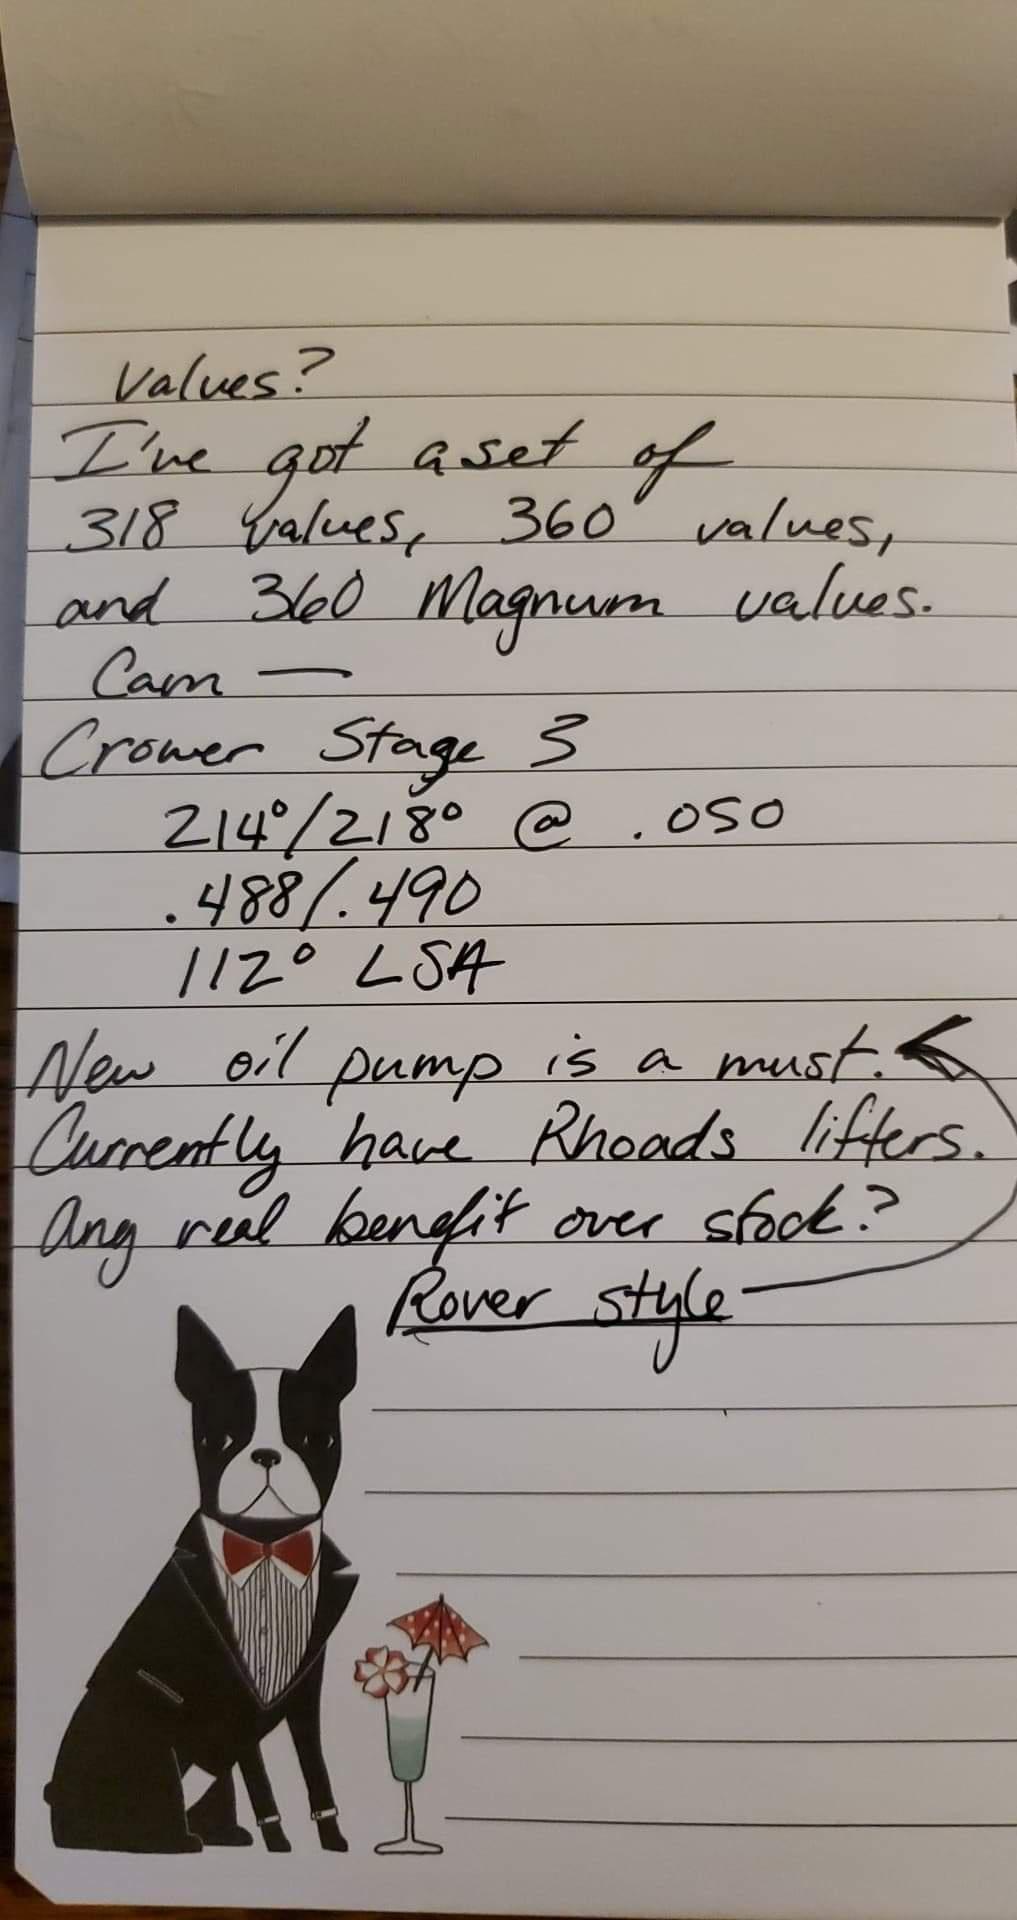 Valves?
I've got a set of
318 valves, 360 valves,
and 360 Magnum valves.
Cam —
Crower Stage 3
214°/218° @ .050
.488/.490
112° LSA
New oil pump is a must.
Currently have Rhoads lifters.
Any real benefit over stock?
Rover style